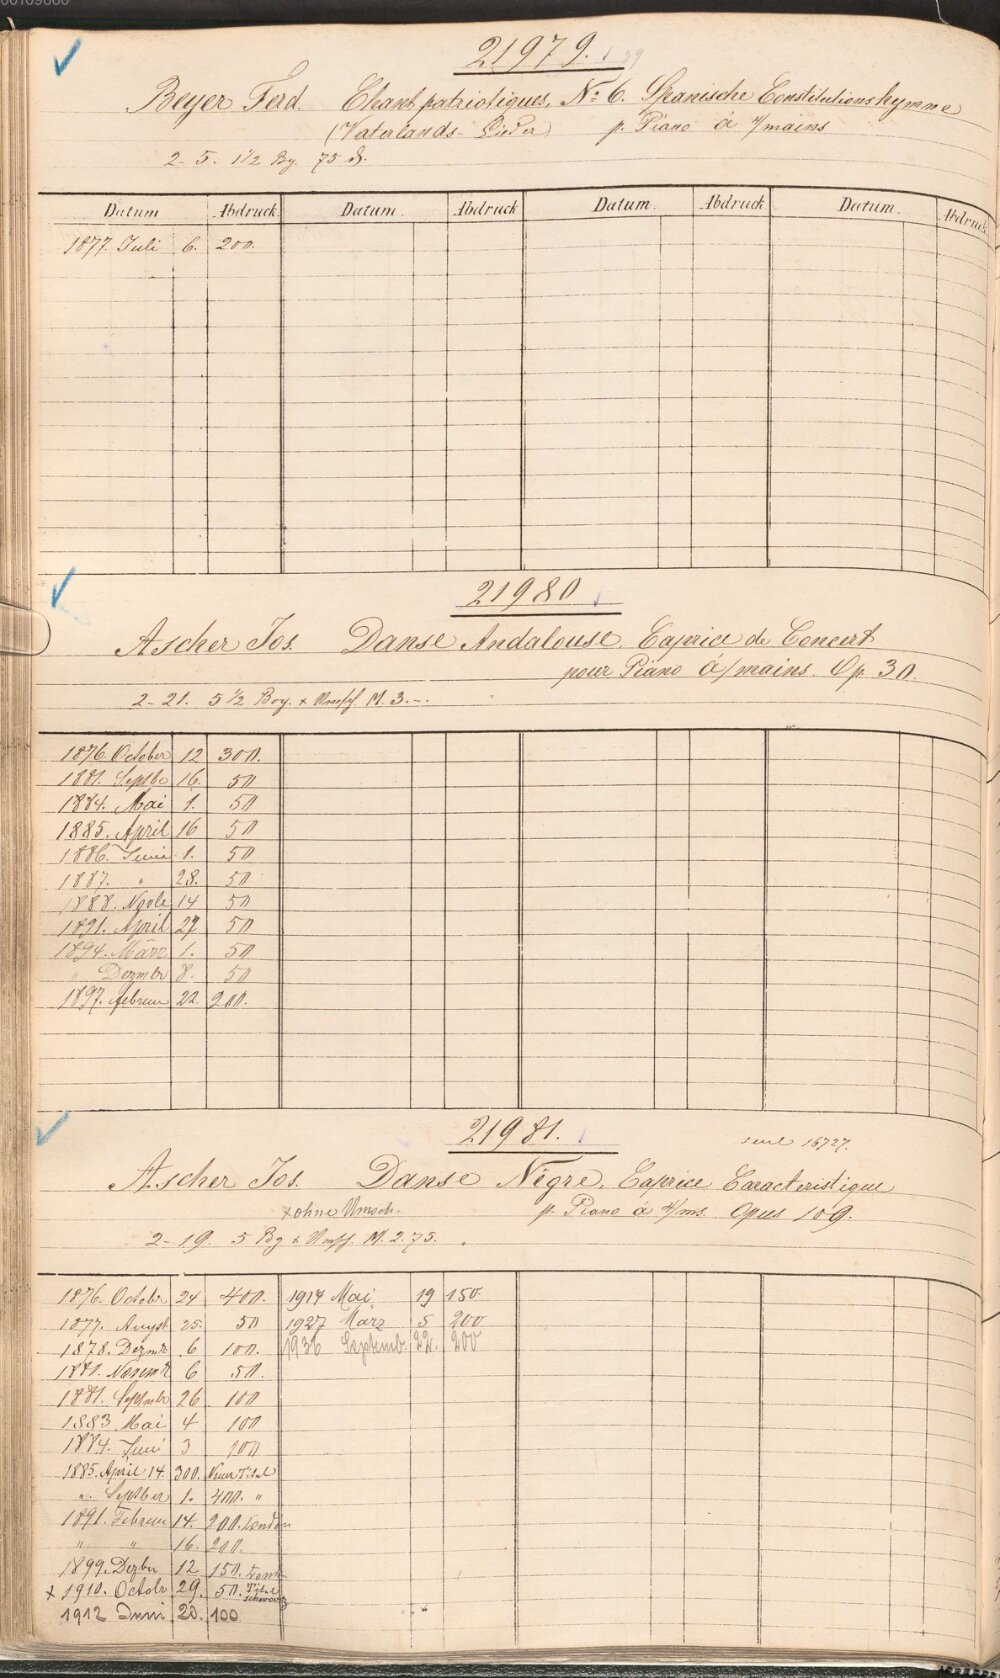 00109660
21979.
Beyer Ferd. Chants patriotiques, No 6. Spanische Constitutionshymne
(Vaterlands-Lieder) p. Piano à 4/mains
2-5. 1 1/2 Bg. 75 ₰.
Datum Abdruck Datum. Abdruck Datum. Abdruck Datum. Abdruck
1877. Juli 6. 200.
21980
Ascher Jos. Danse Andalouse, Caprice de Concert
pour Piano à /mains. Op. 30.
2-21. 5 1/2 Bog. + Umschl. M. 3.-.
1876. October 12 300.
1881. Septbr 16. 50
1884. Mai 1. 50
1885. April 16 50
1886. Juni 1. 50
1887. " 28. 50
1888. 14 50
1891. April 27 50
1894. März 1. 50
" Dezmbr 8. 50
1897. Februar 22. 200.
21981.
16727.
Ascher Jos. Danse Nègre, Caprice Caracteristique
+ ohne Umsch. p. Piano à 4/ms. Opus 109.
2-19. 5 Bg + Umschl. M. 2.75.
1876. Octobr 24 400. 1914 Mai 19 150
1877. August 25. 50 1927 März 5 200
1878. Dezmbr 6 100. 1936 Septemb. 22. 200
1880. Novembr 6 50.
1881. Septmbr 26 100
1883 Mai 4 100
1884. Juni 3 100
1885. April 14. 300. Neuer Titel
". Septber 1. 400. "
1891. Februar 14. 200. London
" " 16. 200.
1899. Dezbr 12 150.
+ 1910. Octobr 29. 50. Titel schwarz
1912 Juni 20. 100